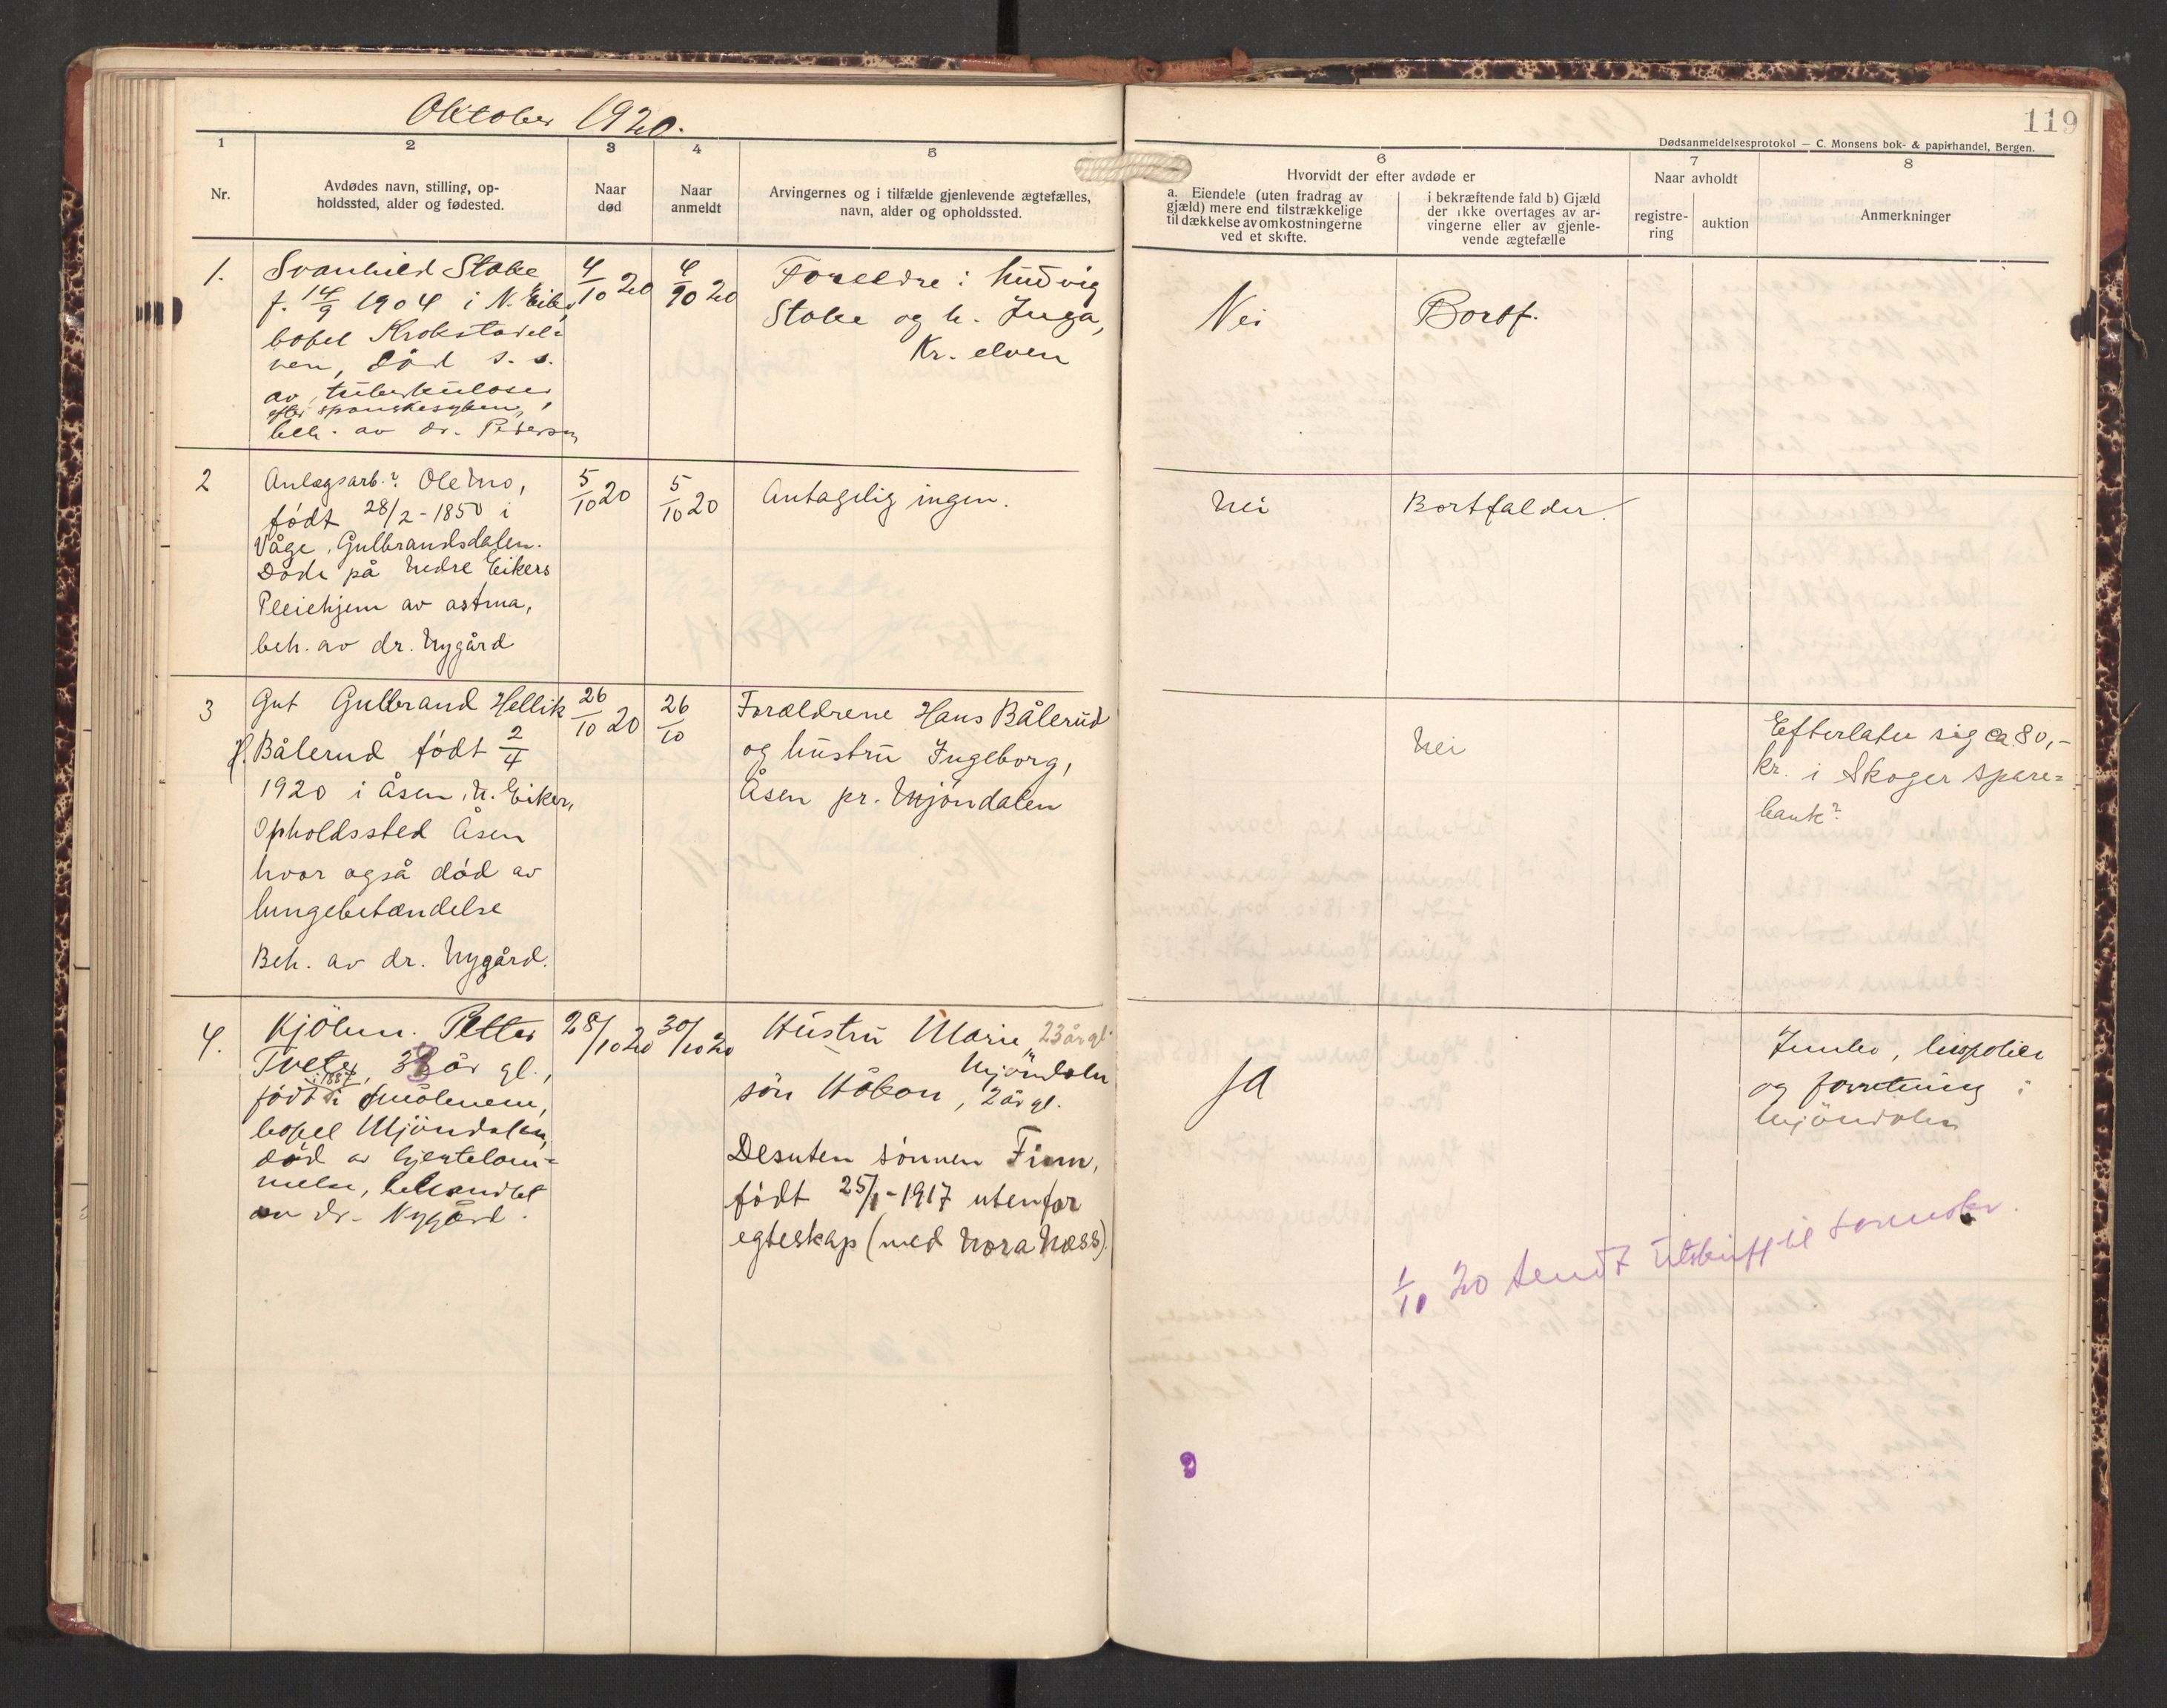 Oktober 1920.
119
Dødsanmeldelsesprotokol — C. Monsens bok- & papirhandel, Bergen.
1
Nr.
2
Avdødes navn, stilling, op-
holdssted, alder og fødested.
3
Naar
død
4
Naar
anmeldt
5
Arvingernes og i tilfælde gjenlevende ægtefælles,
navn, alder og opholdssted.
6
Hvorvidt der efter avdøde er
a. Eiendele (uten fradrag av
gjæld) mere end tilstrækkelige
til dækkelse av omkostningerne
ved et skifte.
i bekræftende fald b) Gjæld
der ikke overtages av ar-
vingerne eller av gjenle-
vende ægtefælle
7
Naar avholdt
registre-
ring
auktion
8
Anmerkninger
1.
Svanhild Stabe
f. 14/9 1904 i N. Eiker,
bopel Krokstadel-
ven, død s. s.
av tuberkulose
efter spanskesyken,
beh. av dr. Petersen
4/10 20
4/10 20
Foreldre: Ludvig
Stabe og h. Inga,
Kr. elven
Nei
Bortf.
2
Anlægsarb.? Ole Mo,
født 28/2 - 1850 i
Våge, Gulbrandsdalen.
Døde på Nedre Eikers
Pleiehjem av astma,
beh. av dr. Nygård
5/10 20
5/10 20
Antagelig ingen.
Nei
Bortfalder.
3
Gut Gulbrand Hellik
H. Bålerud født 2/4
1920 i Åsen, N. Eiker,
Opholdssted Åsen
hvor også død av
lungebetændelse
Beh. av dr. Nygård.
26/10 20
26/10
Forældrene Hans Bålerud
og hustru Ingeborg,
Åsen pr. Mjøndalen
Nei
Efterlater sig ca. 80,-
kr. i Skoger spare=
bank?
4.
Kjøbm. Petter
Tveter, 33 år gl.,
i 1887
født i Smålenene,
bopel Mjøndalen,
død av hjertelam=
melse, behandlet
av dr. Nygård.
28/10 20
30/10 20
Hustru Marie, 23 år gl.
Mjøndalen
søn Håkon, 2 år gl.
Desuten sønnen Finn,
født 25/1 - 1917 utenfor
egteskap (med Nora Næss).
Ja
og forretning i
Mjøndalen
1/11 20 sendt utskrift til sorenskr.